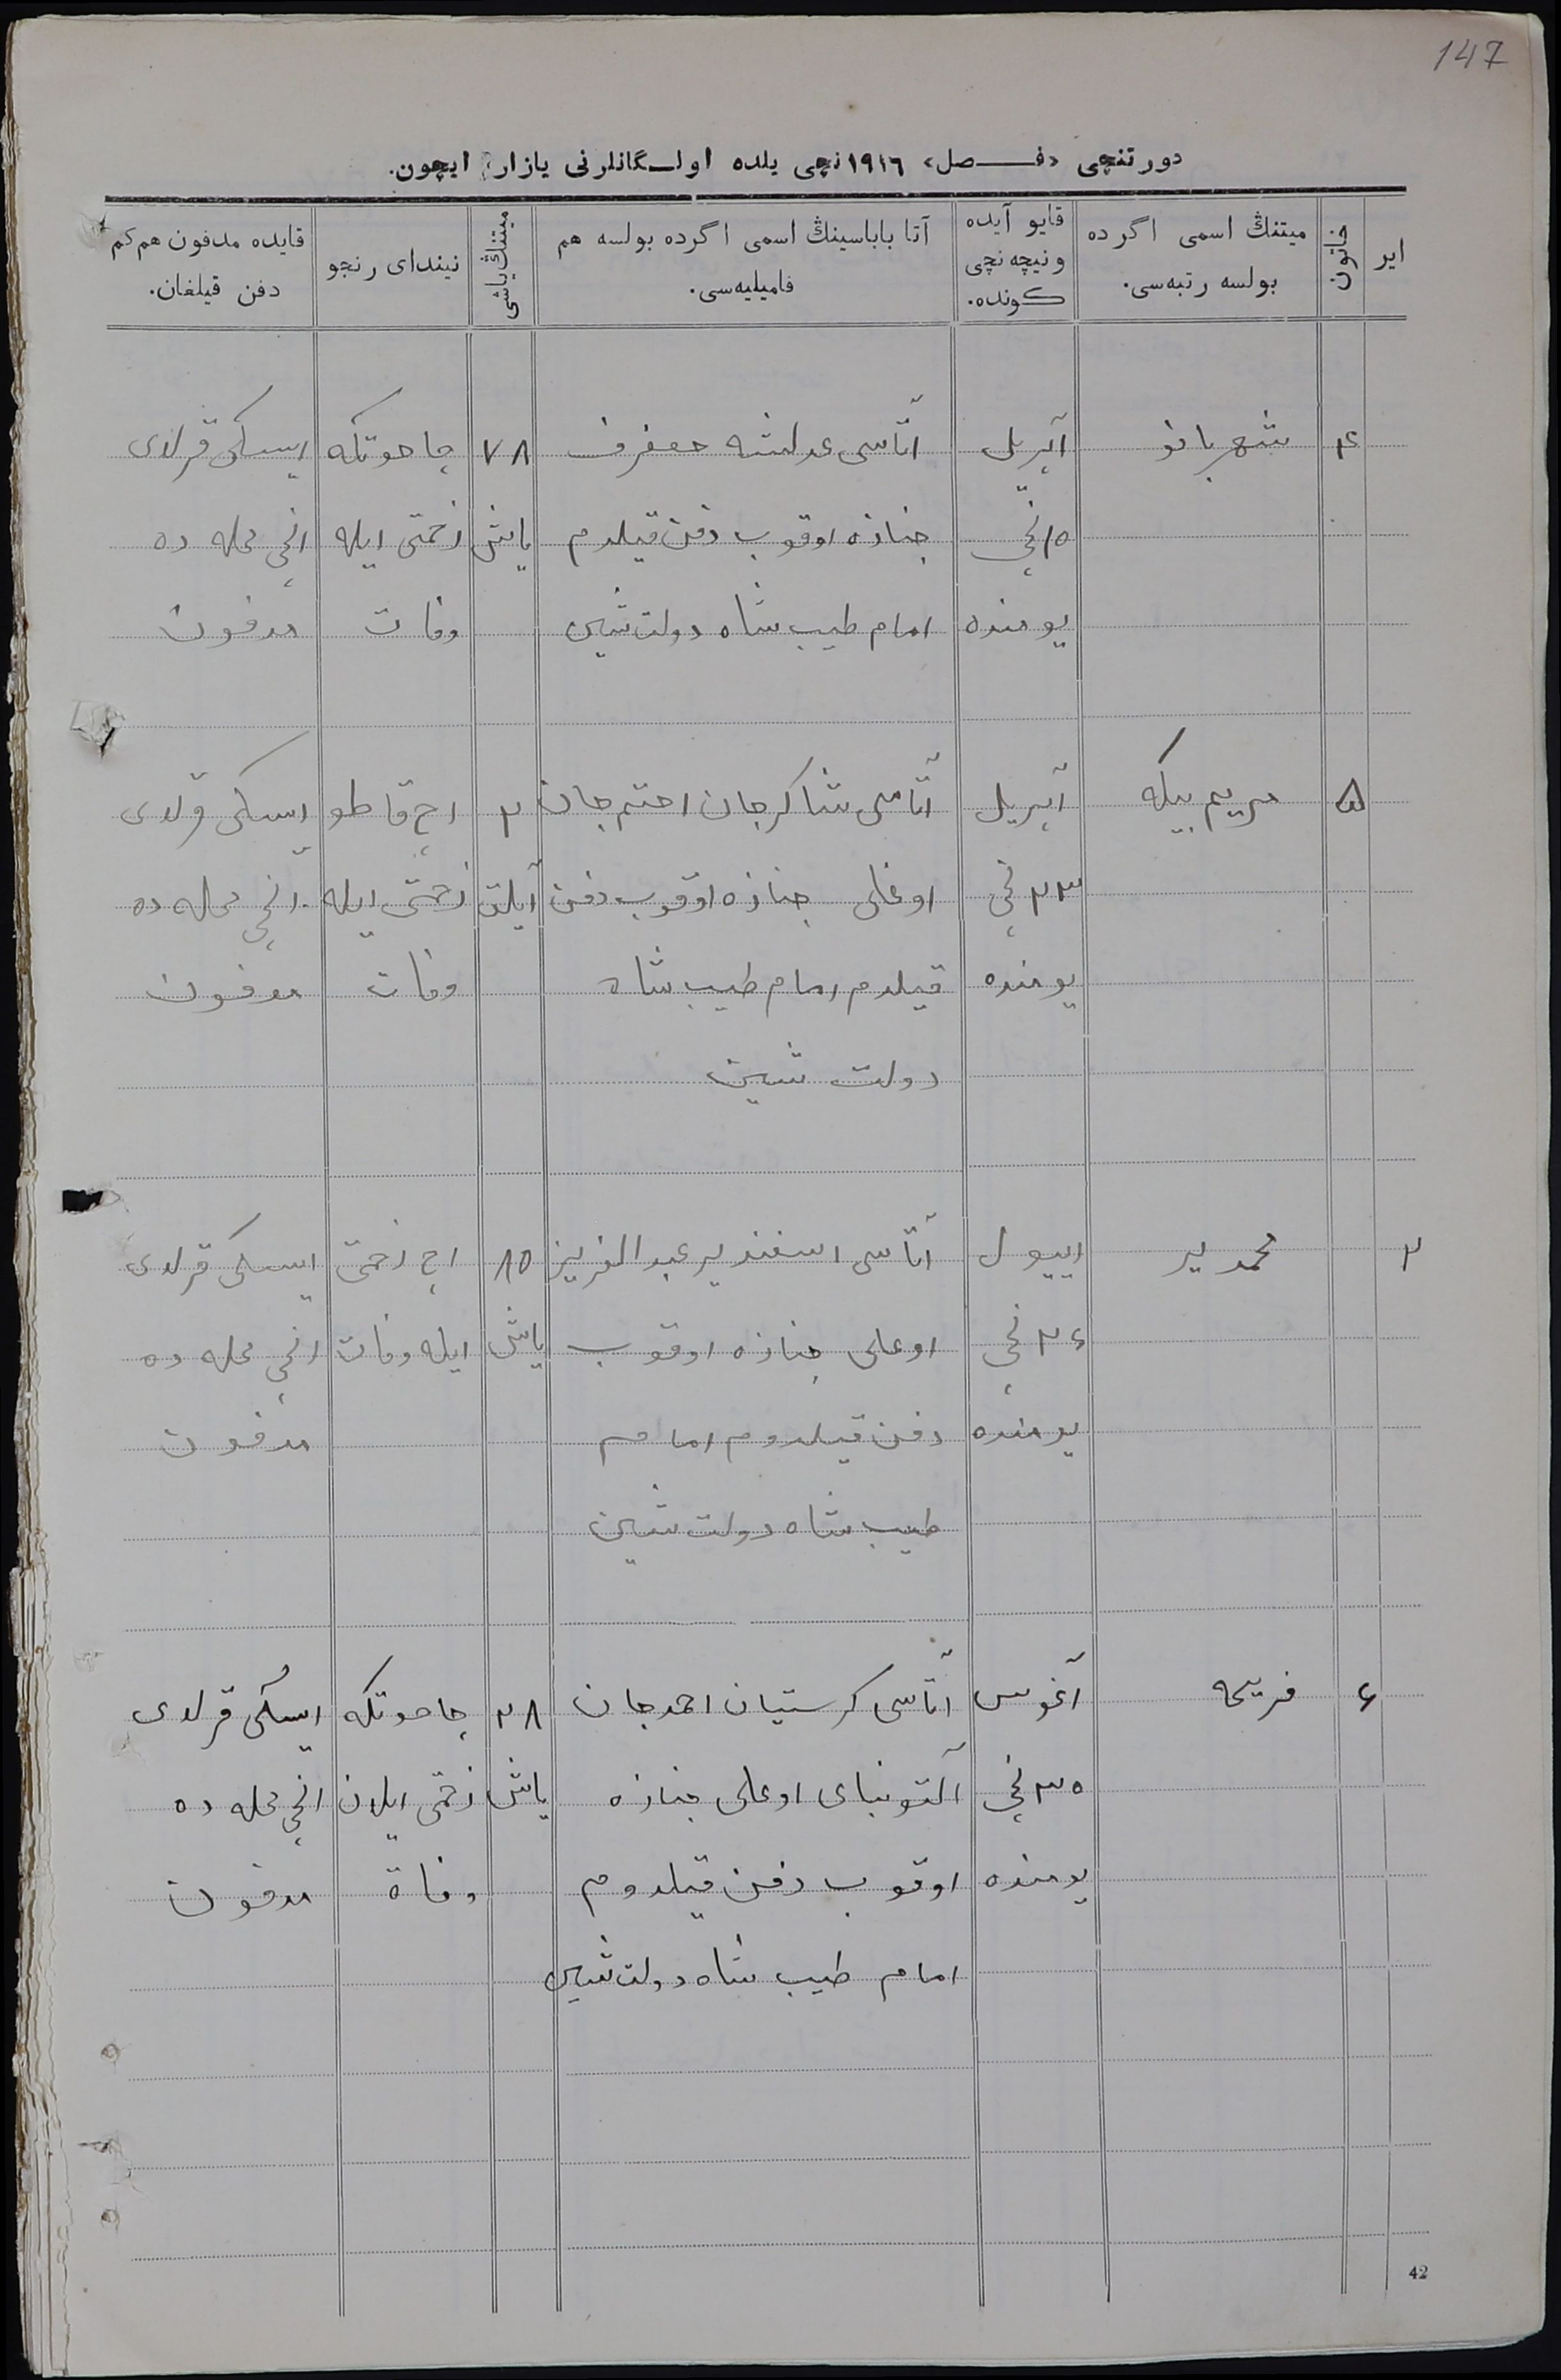 147
دورتنچی «فـــصل» ١٩١٦نچی یلده اولـگانلرنی یازار ایچون.
ایر
خاتون
میتنڭ اسمی اگر ده
بولسه رتبه‌سی.
قایو آیده
ونیچه نچی
کونده.
آتا باباسینڭ اسمی اگرده بولسه هم
فامیلیه‌سی.
میتنڭ یاشی
نیندای رنجو
قایده مدفون هم کم
دفن قیلغان.
۴
شهربانو
آپریل
۱۵نچی
یومنده
آتاسی عدلشه جعفرف
جنازه اوقوب دفن قیلدم
امام طیب شاه دولت شین
۷۸
یاش
چاحوتکه
زحمتی ایله
وفات
ایسکی قرلای
انچی محله ده
مدفون
۵
مریم بیکه
آپریل
۲۳نچی
یومنده
آتاسی شاکرجان احتم جان
اوغلی جنازه اوقوب دفن
قیلدم امام طیب شاه
دولت شین
۲
آیلق
اچ قاطو
زحمتی ایله
وفات
ایسکی قرلای
انچی محله ده
مدفون
۲
محمدیر
اییول
۲۶نچی
یومنده
آتاسی اسفندیر عبدالعزیز
اوغلی جنازه اوقوب
دفن قیلدوم امام
طیب شاه دولت شین
۸۵
یاش
اچ زحمتی
ایله وفات
ایسکی قرلای
انچی محله ده
مدفون
۶
فریحه
آغوس
۳۰نچی
یومنده
آتاسی کرستیان احمدجان
آلتونبای اوغلی جنازه
اوقوب دفن قیلدوم
امام طیب شاه دولت شین
۲۸
یاش
چاحوتکه
زحمتی ایلان
وفاة
ایسکی قرلای
انچی محله ده
مدفون
42